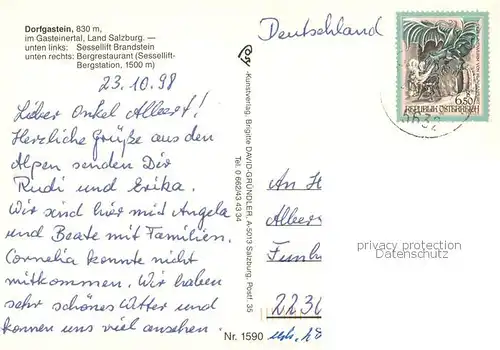 Dorfgastein, 830 m,
im Gasteinertal, Land Salzburg. —
unten links: Sessellift Brandstein
unten rechts: Bergrestaurant (Sessellift-
Bergstation, 1500 m)
23.10.98
Lieber Onkel Albert!
Herzliche Grüße aus den
Alpen senden Dir
Rudi und Erika.
Wir sind hier mit Angela
und Beate mit Familien.
Cornelia konnte nicht
mitkommen. Wir haben
sehr schönes Wetter und
können uns viel ansehen.
-Kunstverlag, Brigitte DAVID-GRÜNDLER, A-5013 Salzburg, Postf. 35
Tel. 0 662/43 43 34
Nr. 1590
Deutschland
6.50
REPUBLIK ÖSTERREICH
5632
An H
Alber
privacy protection
Datenschutz